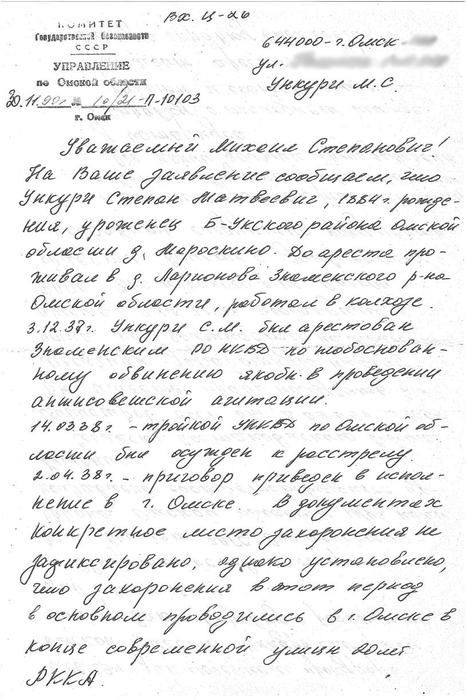 Вх. Ц-26
КОМИТЕТ
Государственной безопасности
СССР
УПРАВЛЕНИЕ
по Омской области
30.11.90г № 10/21-П-10103
г. Омск
644000-г. Омск
ул.
Ункури М.С.
Уважаемый Михаил Степанович!
На Ваше заявление сообщаем, что
Ункури Степан Матвеевич, 1884г. рожде-
ния, уроженец Б-Укского района Омской
области д. Мороскино. До ареста про-
живал в д. Ларионова Знаменского р-на
Омской области, работал в колхозе.
3.12.37г. Ункури С.М. был арестован
Знаменским РО НКВД по необоснован-
ному обвинению якобы в проведении
антисоветской агитации.
14.03.38г. - тройкой УНКВД по Омской об-
ласти был осужден к расстрелу.
2.04.38г. - приговор приведен в испол-
нение в г. Омске В документах
конкретное место захоронения не
зафиксировано, однако установлено,
что захоронения в этот период
в основном проводились в г. Омске в
конце современной улицы 20 лет
РККА.